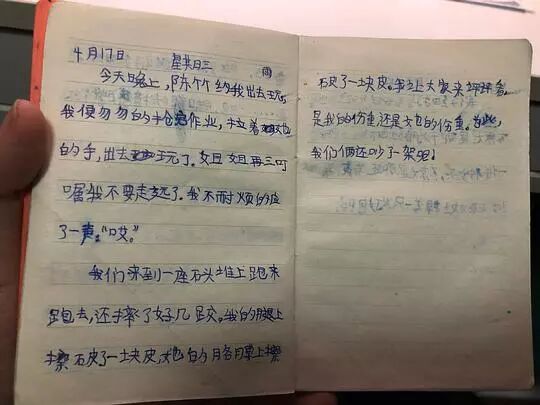 4月17日 星期三 雨
今天晚上，陈竹约我出去玩，
我便匆匆的补完作业，拉着她
的手，出去玩了。姐姐再三叮
嘱我不要走远了。我不耐烦的应
了一声："哎。"
我们来到一座石头堆上跑来
跑去，还摔了好几跤。我的腿上
擦破了一块皮，她的胳膊上擦
破了一块皮。马上大家来评评看，
是我的伤重还是她的伤重。为此，
我们俩还吵了一架呢！